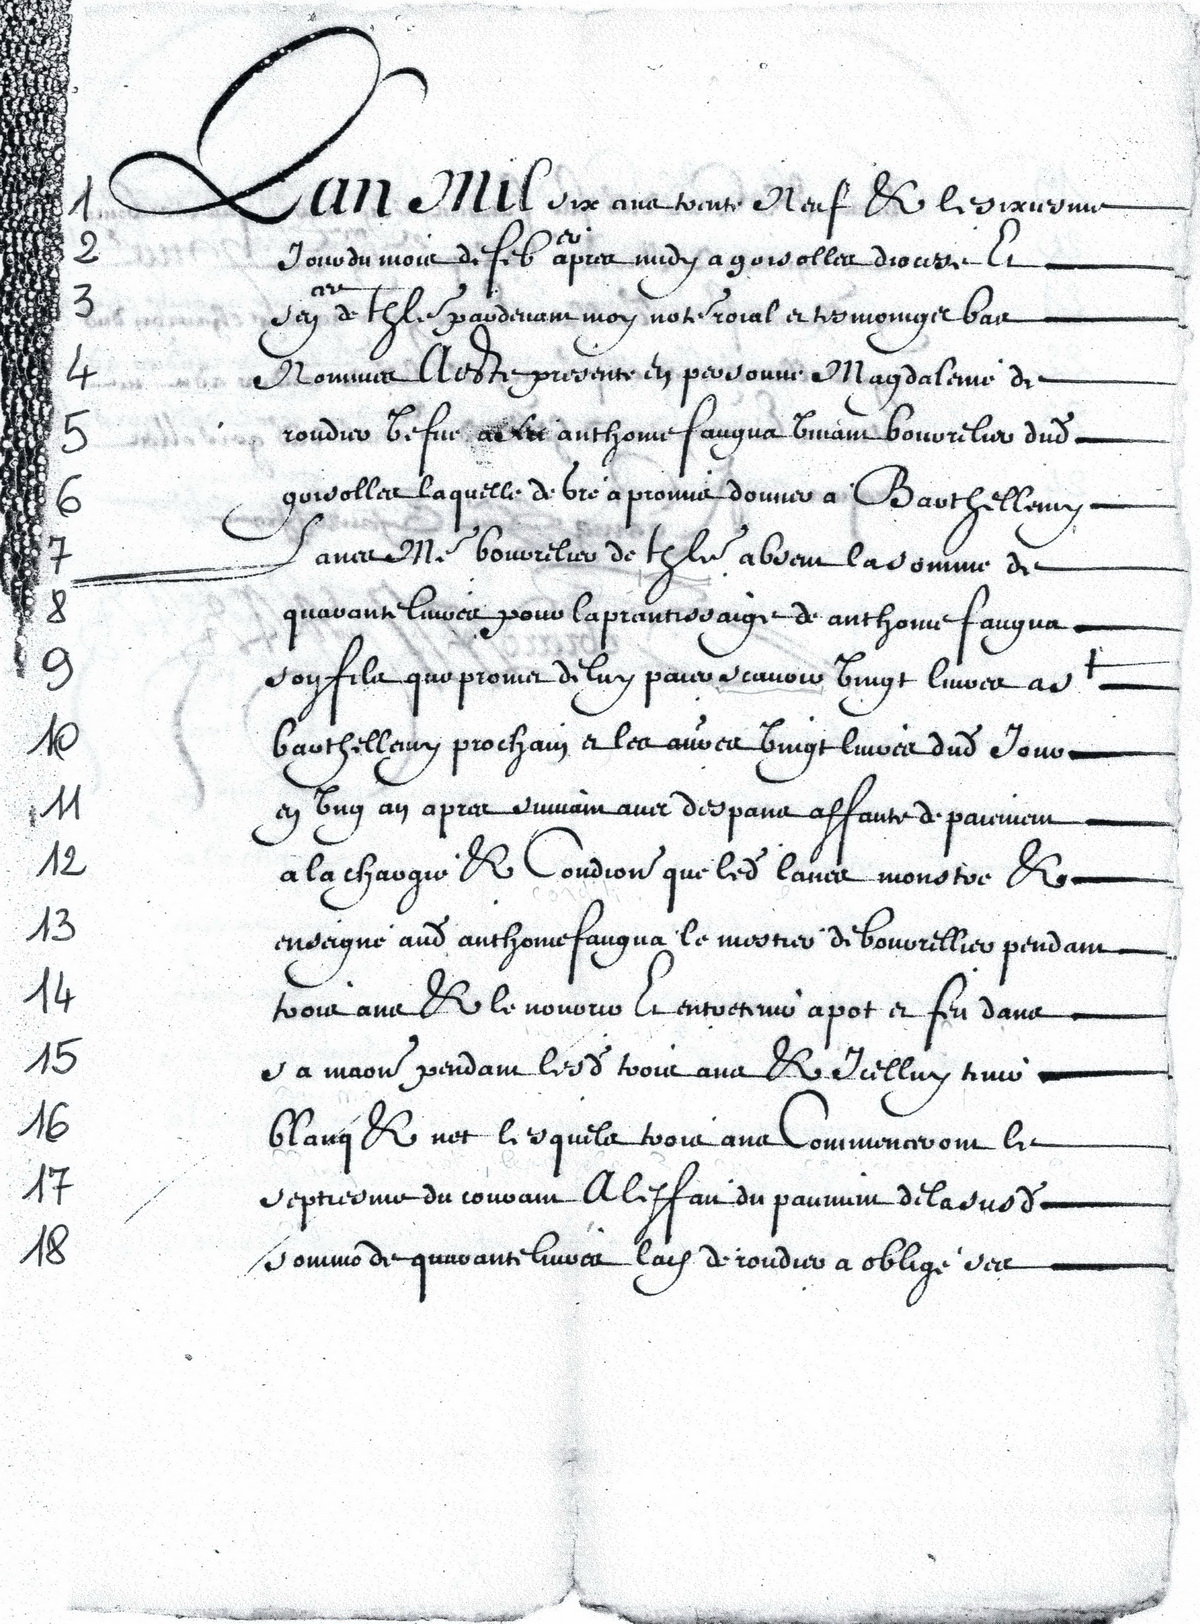 1 Lan Mil six cens trente Neuf & le sixiesme
2 Jour du mois de feb<sup>er</sup> apres midy a goisolles diocese Et
3 sen<sup>cee</sup> de thle pardevant moy note roial et tesmoingz bas
4 Nommes A este presente en personne Magdalene de
5 roudier vefve anthoine faugua vivant bourrelier dud
6 goisolles laquelle de gre a promis donner a Barthellemy
7 laues Me bourrelier de thle absent la somme de
8 quarante livres pour laprantissaige de anthoine faugua
9 son filz que promet de luy paier scavoir vingt livres a st
10 barthellemy prochain et les autres vingt livres dud Jour
11 en ung an apres suivant avec despans a ffaute de paiement
12 a la charge & Condion que led laues monstre &
13 enseigne aud anthoine faugua le mestier de bourrellier pendant
14 trois ans & le nourir Et entretenir a pot et feu dans
15 sa maon pendant lesd trois ans & Icelluy tenir
16 blanq & net lesquels trois ans Commenceront le
17 septiesme du courant A leffait du paiement de la susd
18 somme de quarante livres lad de roudier a oblige ses